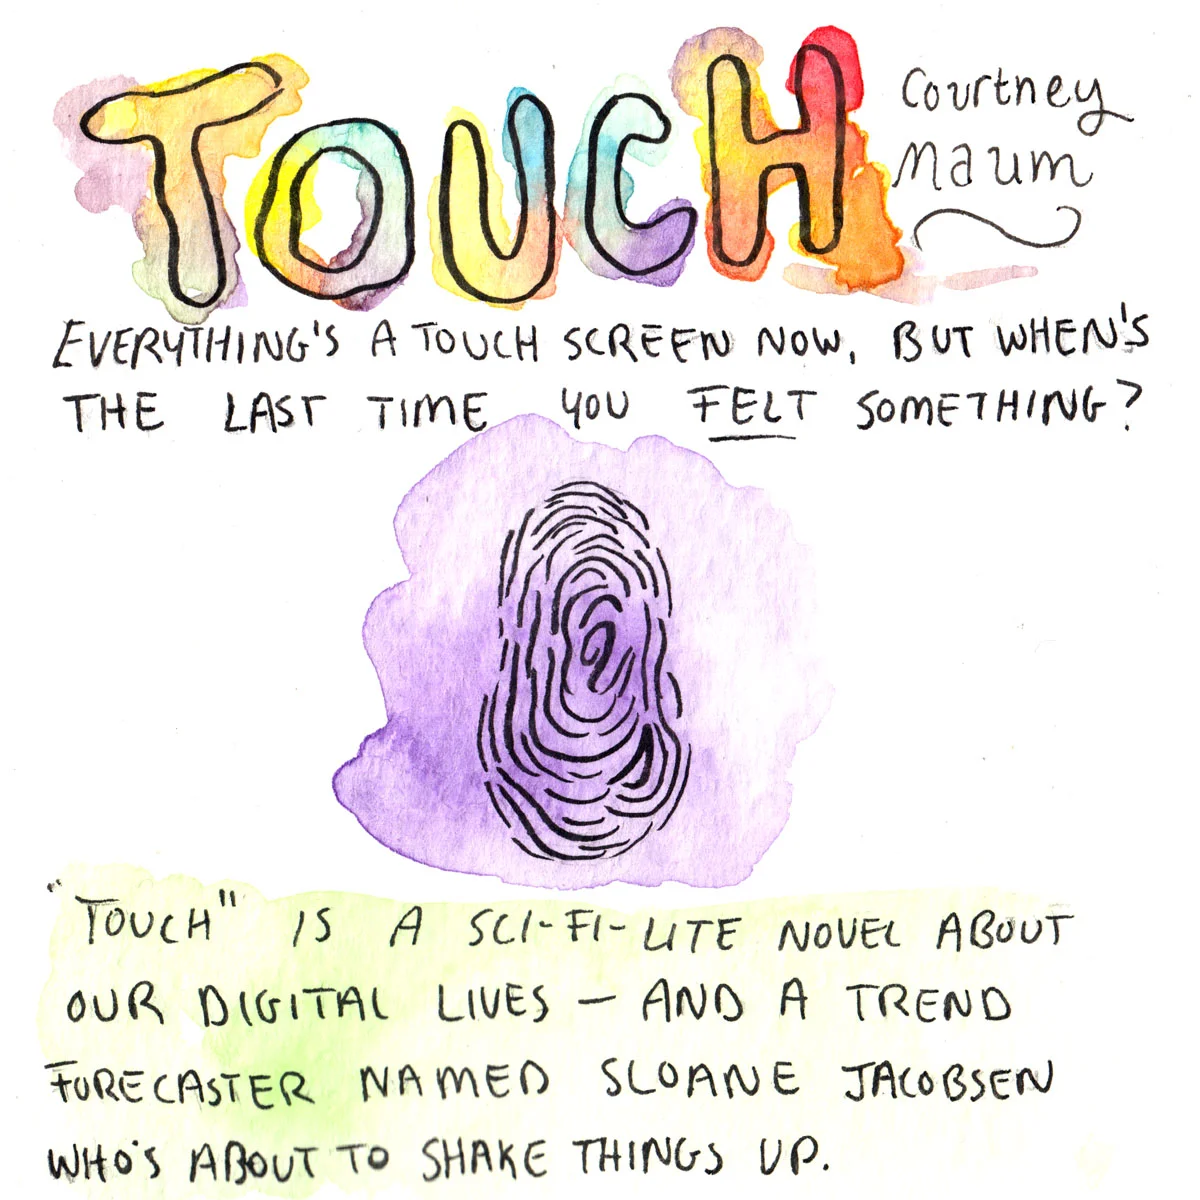 TOUCH
Courtney
Maum
EVERYTHING'S A TOUCH SCREEN NOW, BUT WHEN'S
THE LAST TIME YOU FELT SOMETHING?
"TOUCH" IS A SCI-FI-LITE NOVEL ABOUT
OUR DIGITAL LIVES — AND A TREND
FORECASTER NAMED SLOANE JACOBSEN
WHO'S ABOUT TO SHAKE THINGS UP.